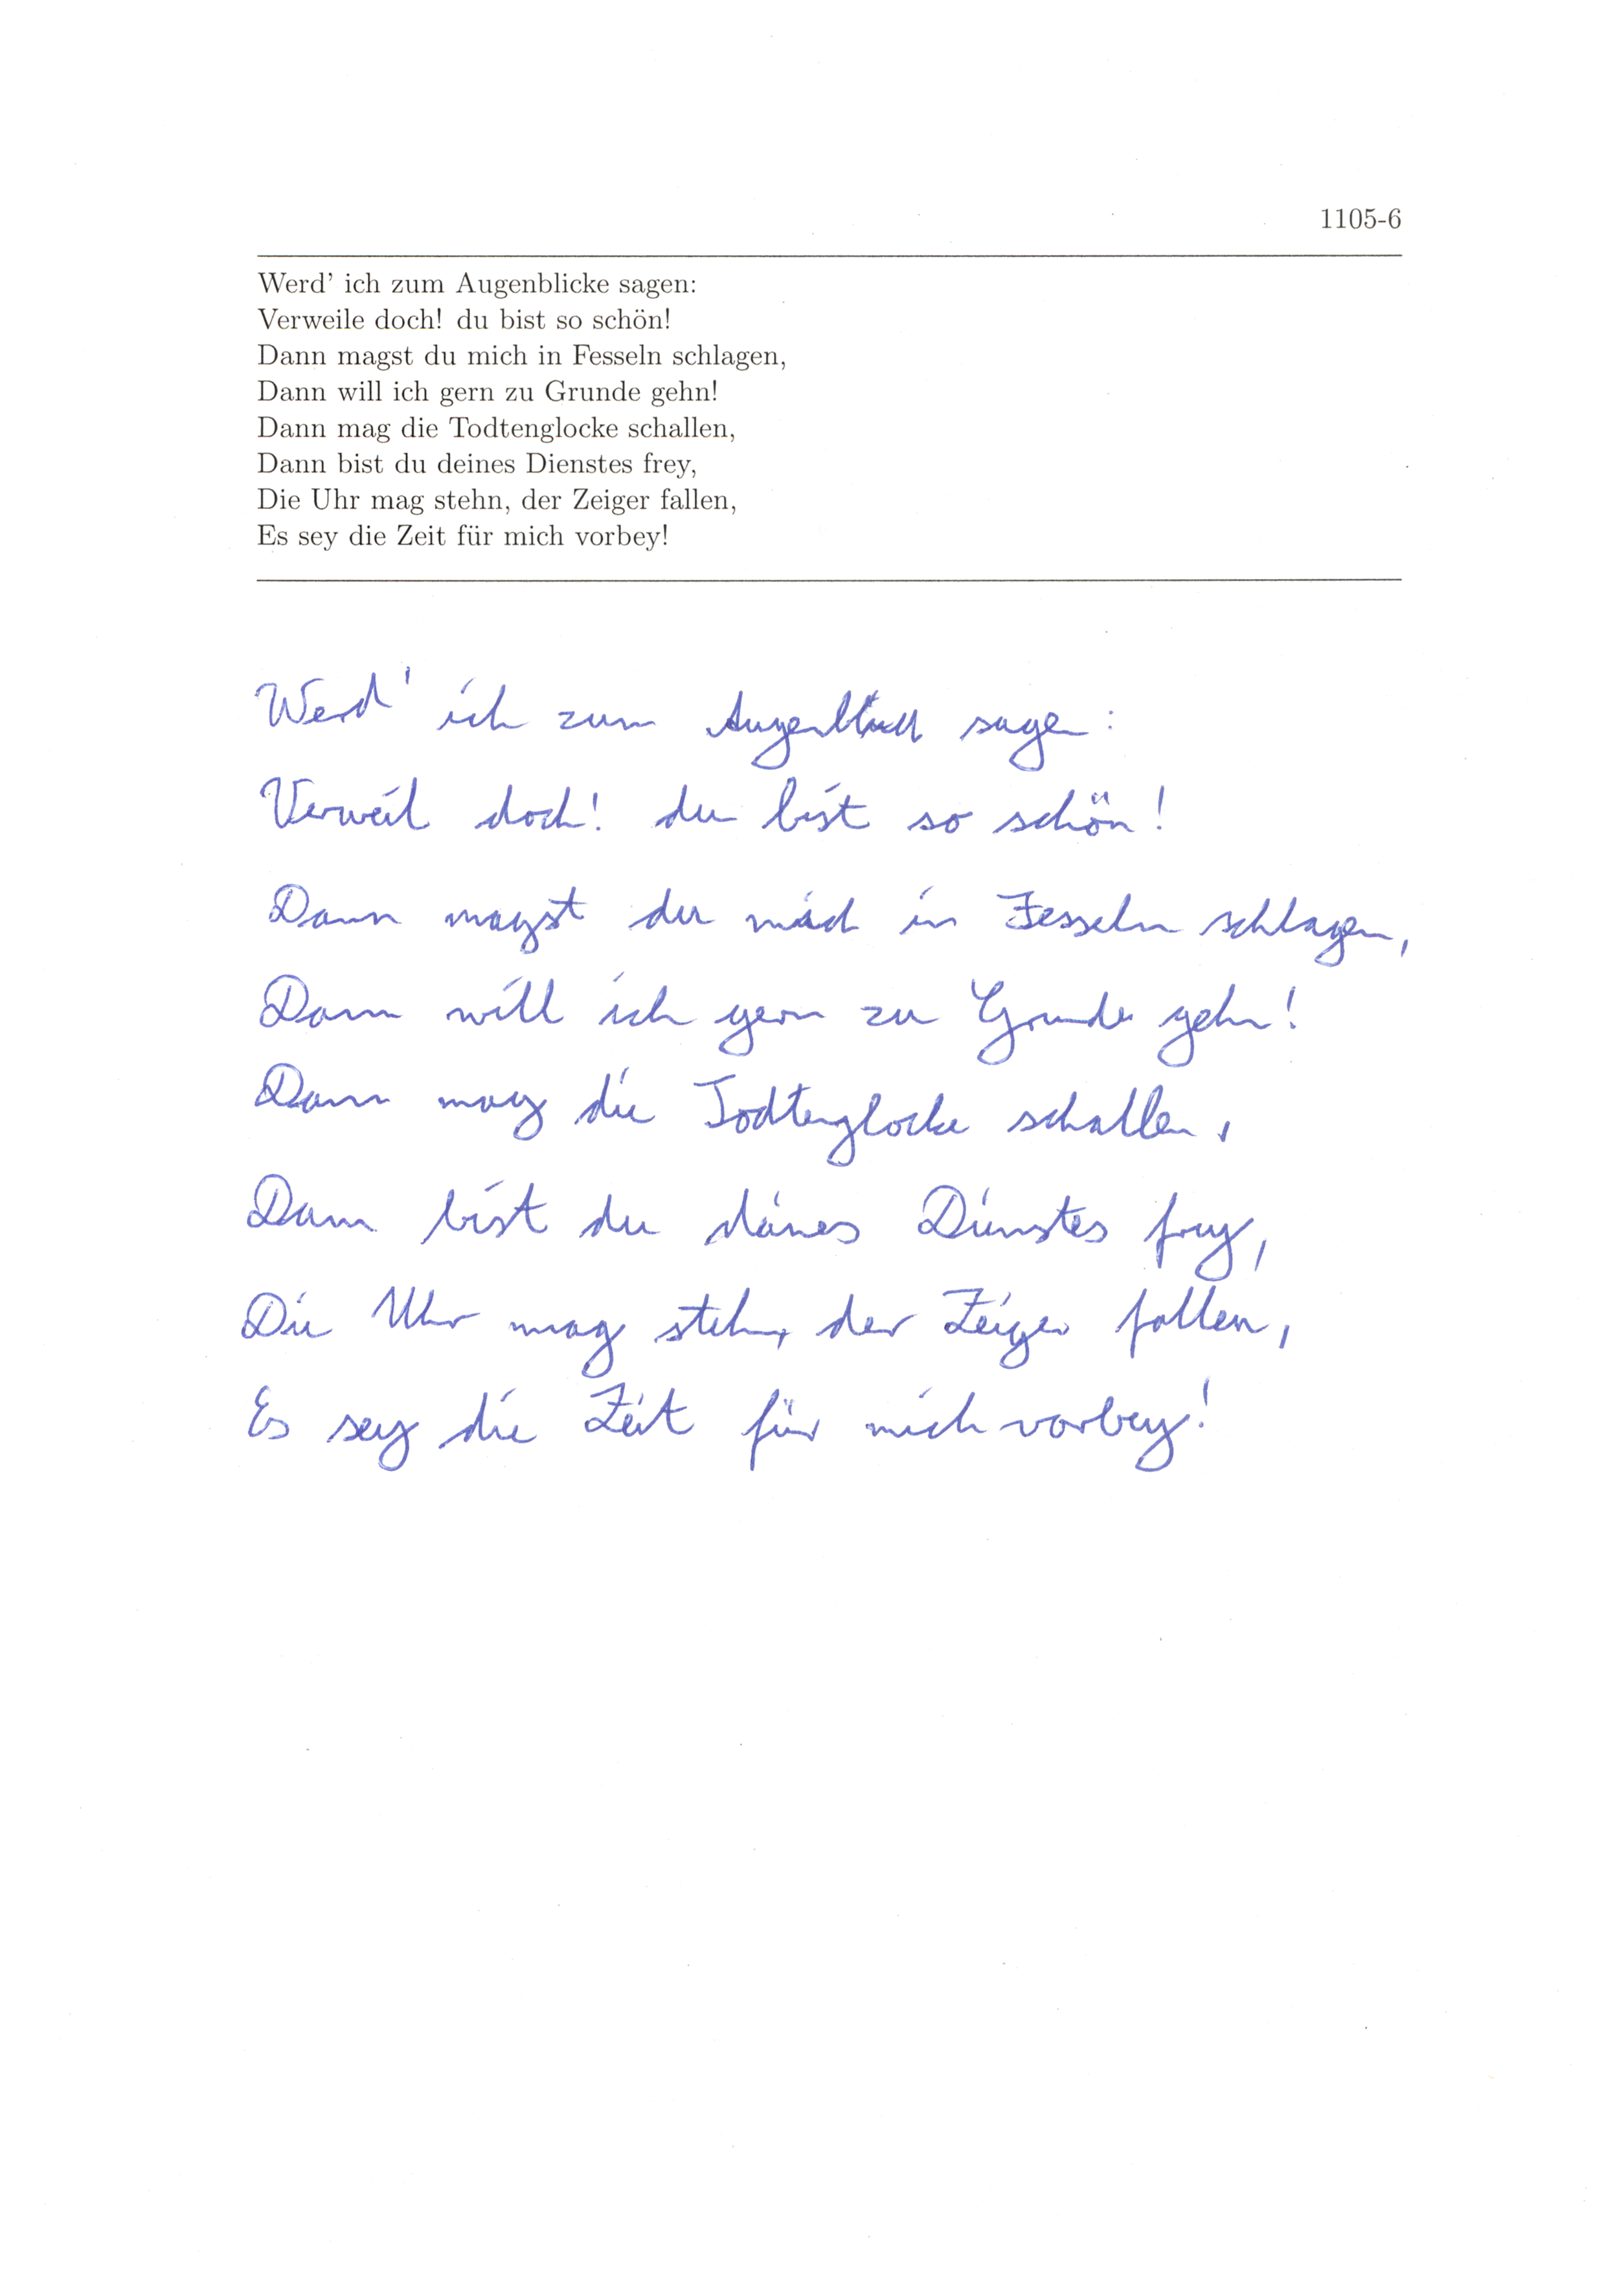 1105-6
Werd' ich zum Augenblicke sagen:
Verweile doch! du bist so schön!
Dann magst du mich in Fesseln schlagen,
Dann will ich gern zu Grunde gehn!
Dann mag die Todtenglocke schallen,
Dann bist du deines Dienstes frey,
Die Uhr mag stehn, der Zeiger fallen,
Es sey die Zeit für mich vorbey!
Werd' ich zum Augenblick sagen:
Verweil doch! du bist so schön!
Dann magst du mich in Fesseln schlagen,
Dann will ich gern zu Grunde gehn!
Dann mag die Todtenglocke schallen,
Dann bist du deines Dienstes frey,
Die Uhr mag stehn, der Zeiger fallen,
Es sey die Zeit für mich vorbey!